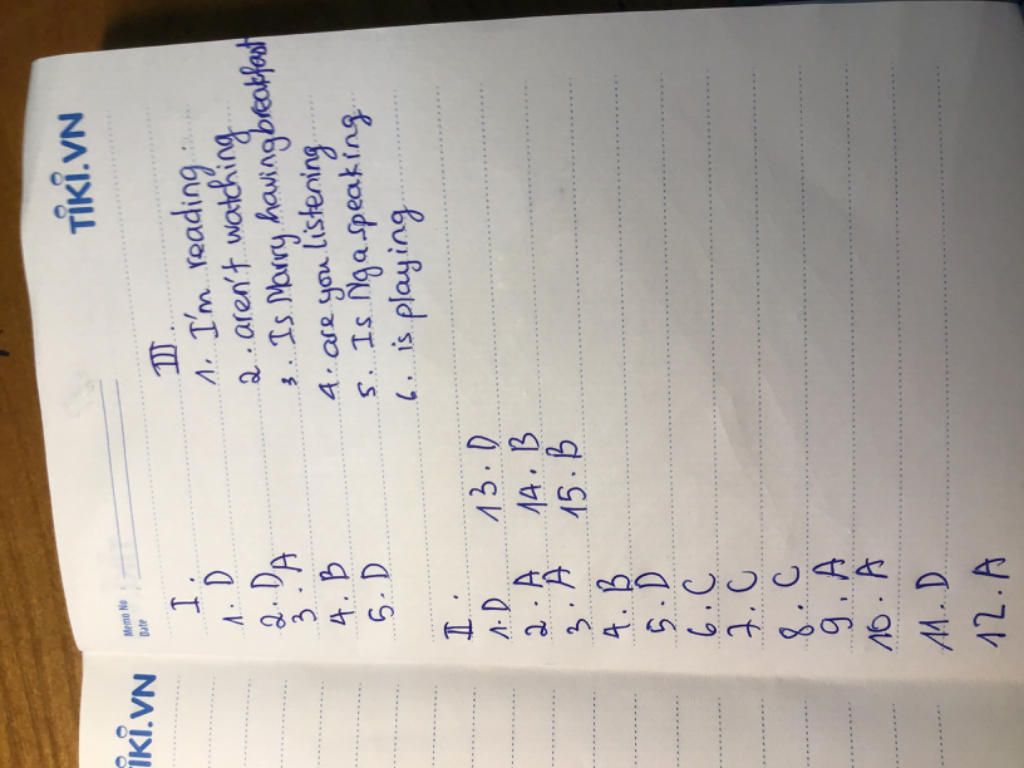 TIKI.VN
Memo No
Date
I.
1. D
2. D
3. A
4. B
5. D
II.
1. D
2. A
3. A
4. B
5. D
6. C
7. C
8. C
9. A
10. A
11. D
12. A
13. D
14. B
15. B
III.
1. I'm reading
2. aren't watching
3. Is Marry having breakfast
4. are you listening
5. Is Nga speaking
6. is playing
TIKI.VN